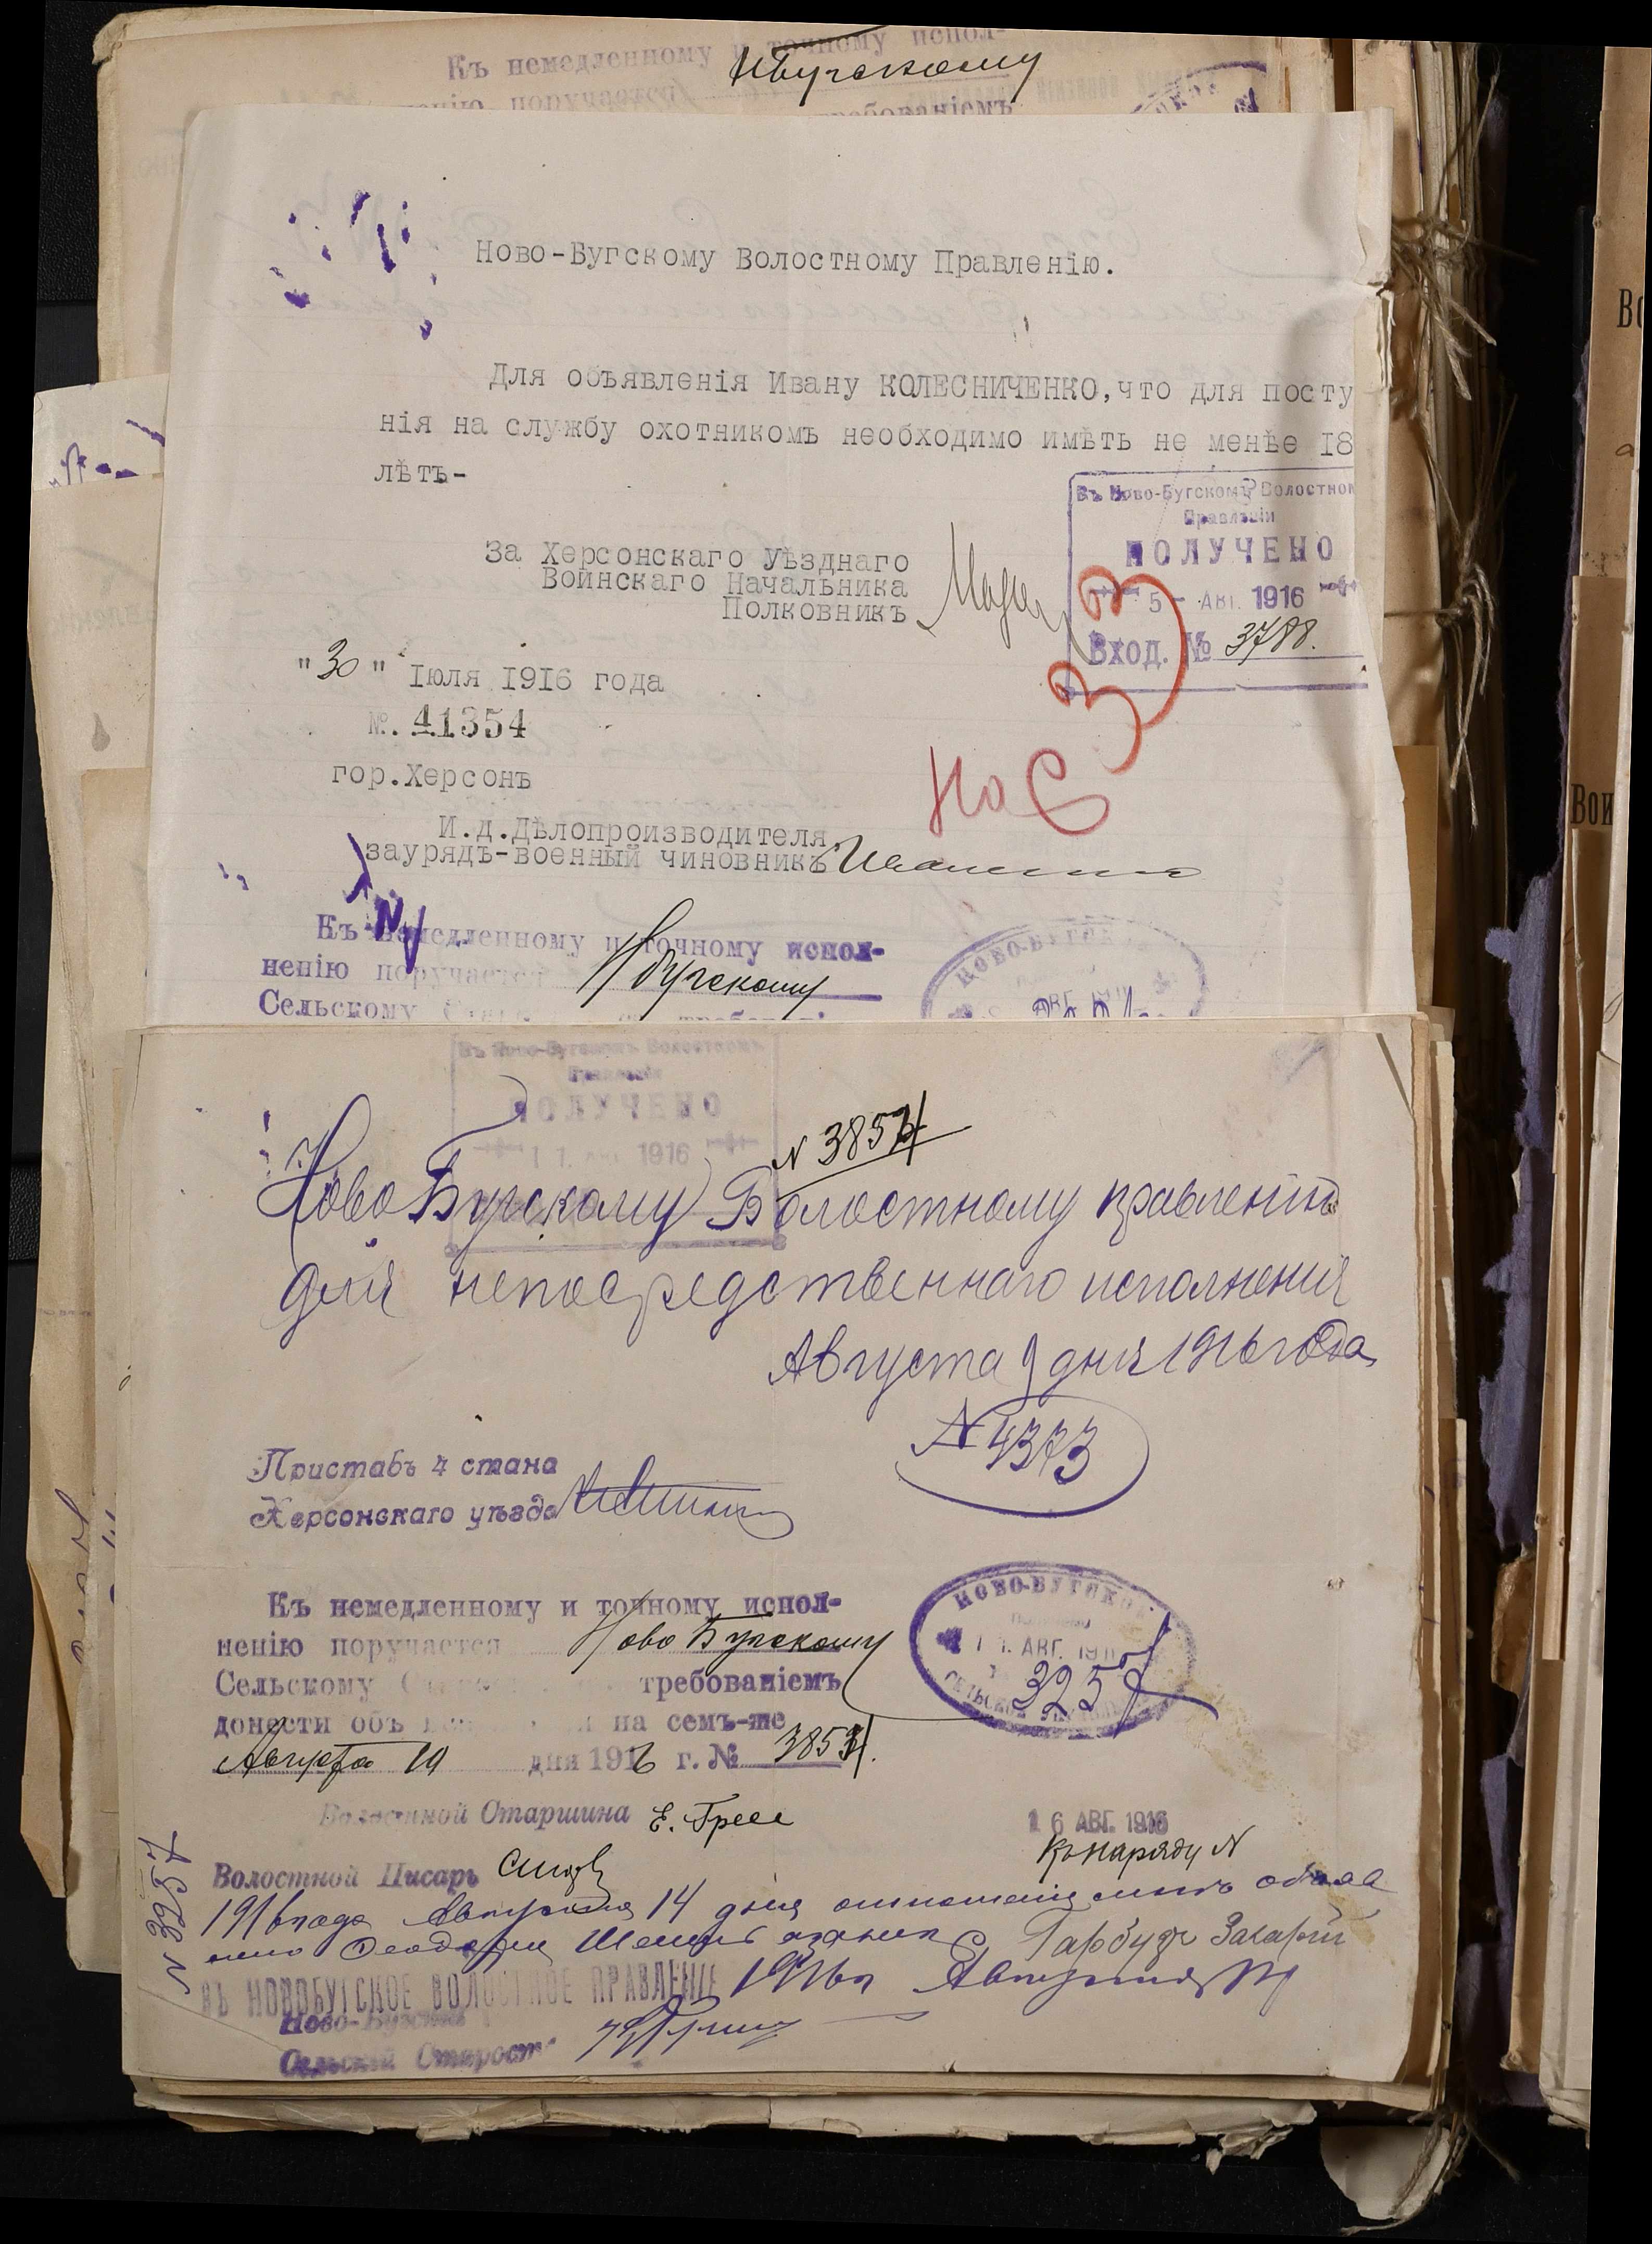 Къ немедленному и точному испол-
Нбугскому
нію поручается
требованіемъ
Ново-Бугскому Волостному Правленію.
Для объявленія Ивану КОЛЕСНИЧЕНКО, что для посту
нія на службу охотникомъ необходимо имѣть не менѣе 18
лѣтъ-
Въ Ново-Бугскомъ Волостном
Правленіи
ПОЛУЧЕНО
5 - АВГ. 1916
Вход. № 3788.
За Херсонскаго Уѣзднаго
Воинскаго Начальника
Полковникъ
"30" Іюля 1916 года
№. 41354
гор.Херсонъ
И.д.Дѣлопроизводителя,
заурядъ-военный чиновникъ
Къ немедленному и точному испол-
ненію поручается Нбугскому
Сельскому
НОВО-БУГСК
АВГ. 191
Въ Ново-Бугскомъ Волостномъ
Правленіи
ПОЛУЧЕНО
11. 1916
N 3854
Ново Бугскому Волостному правленію
для непосредственнаго исполненія
Августа 9 дня 1916 года
N 4373
Приставъ 4 стана
Херсонскаго уѣзда
Къ немедленному и точному испол-
ненію поручается Ново Бугскому
Сельскому требованіемъ
донести объ на семъ-же
Августа 10 дня 1916 г. № 3854.
НОВО-БУГСКОЕ
11. АВГ. 191
3257
Волостной Старшина Е.
16 АВГ. 1916
Къ наряду N
Волостной Писарь
N 3257
1916 года Августа 14 дня
Гарбузъ Захарій
1916 г Августа
ВЪ НОВОБУГСКОЕ ВОЛОСТНОЕ ПРАВЛЕНІЕ
Ново-Бугскій
Сельскій Староста
Во
Вои